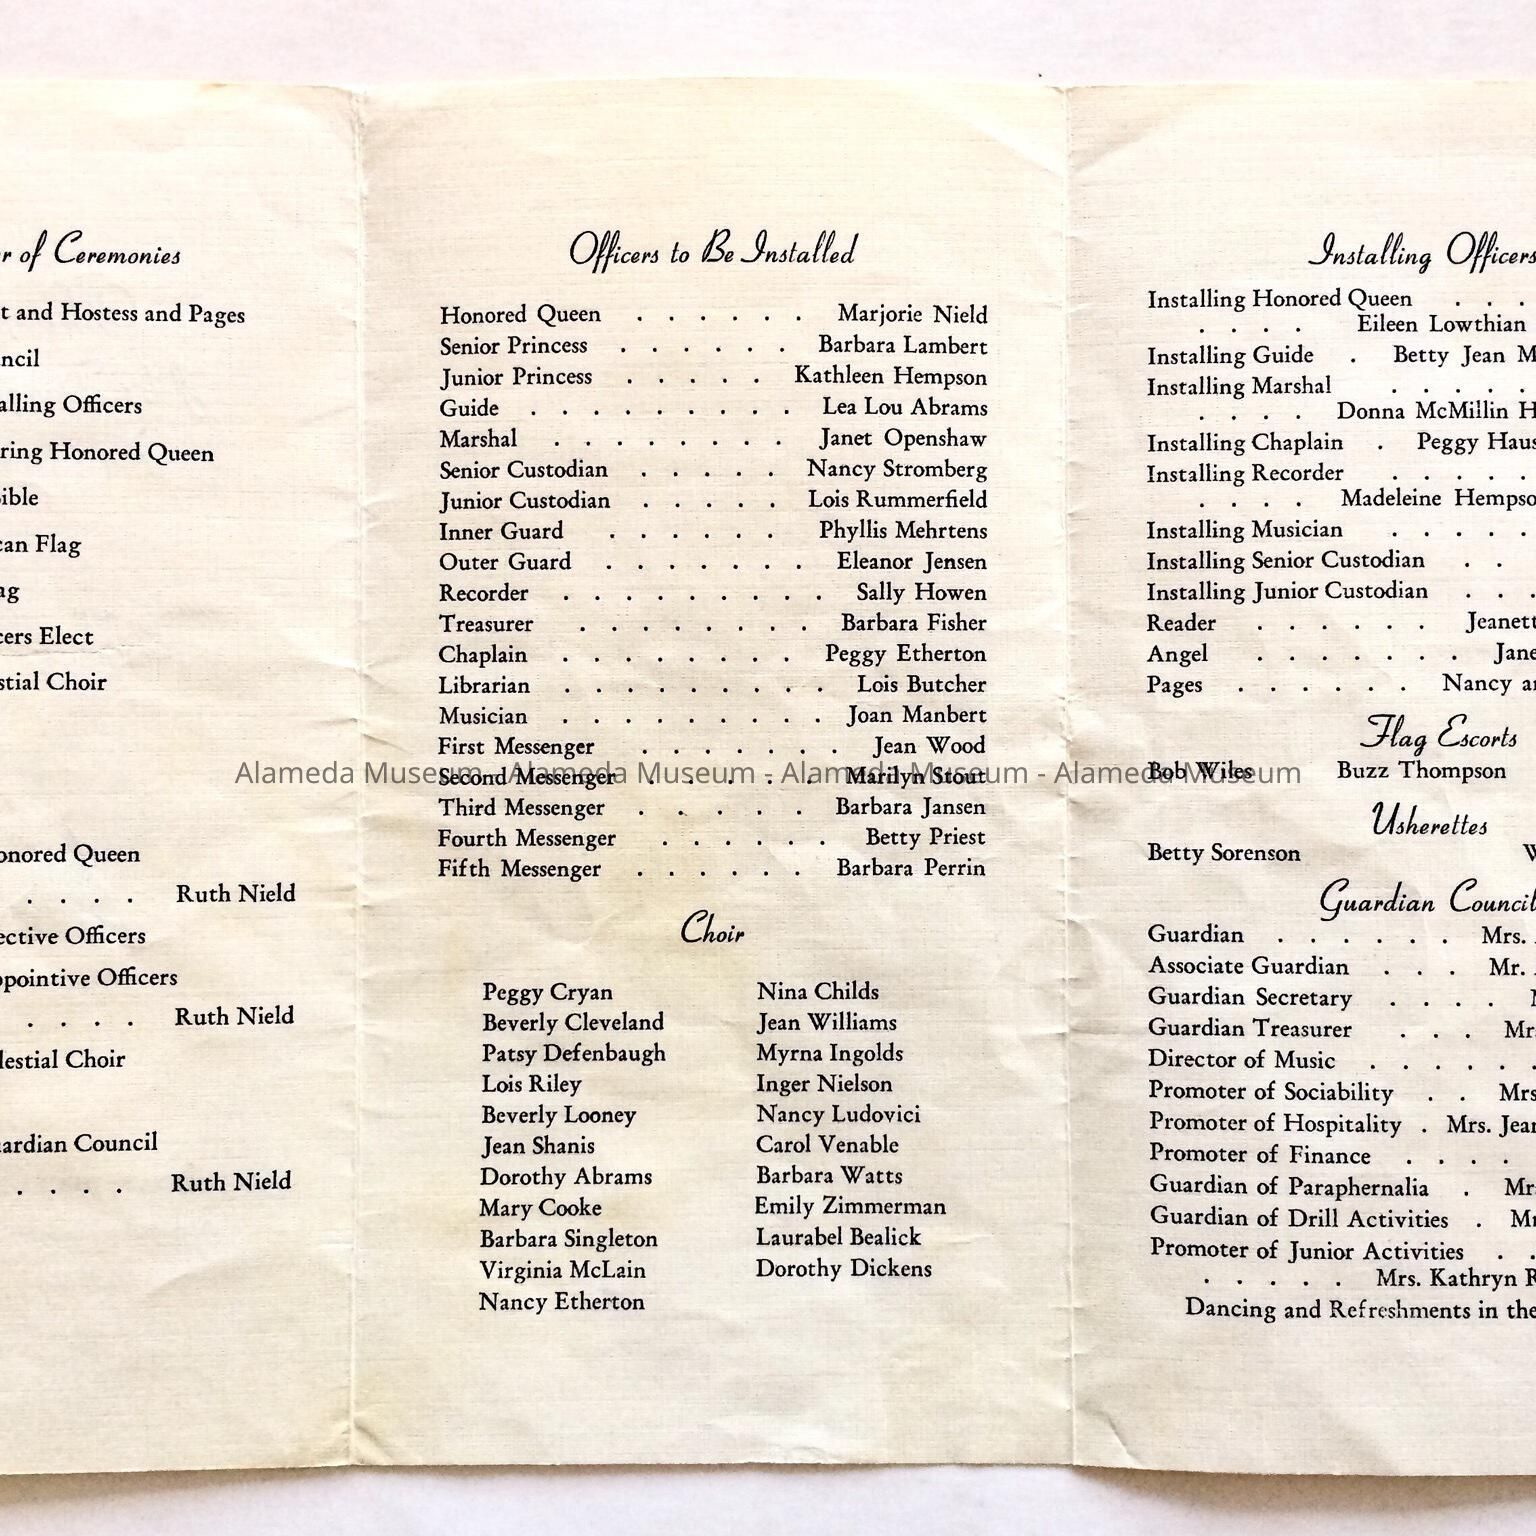 r of Ceremonies
t and Hostess and Pages
ncil
alling Officers
ring Honored Queen
ible
can Flag
ag
cers Elect
stial Choir
onored Queen
. . . . Ruth Nield
ective Officers
ppointive Officers
. . . . Ruth Nield
lestial Choir
uardian Council
. . . . Ruth Nield
Officers to Be Installed
Honored Queen . . . . . . Marjorie Nield
Senior Princess . . . . . . Barbara Lambert
Junior Princess . . . . . Kathleen Hempson
Guide . . . . . . . . . Lea Lou Abrams
Marshal . . . . . . . . Janet Openshaw
Senior Custodian . . . . . Nancy Stromberg
Junior Custodian . . . . . Lois Rummerfield
Inner Guard . . . . . . Phyllis Mehrtens
Outer Guard . . . . . . . Eleanor Jensen
Recorder . . . . . . . . . Sally Howen
Treasurer . . . . . . . . Barbara Fisher
Chaplain . . . . . . . . Peggy Etherton
Librarian . . . . . . . . . Lois Butcher
Musician . . . . . . . . . Joan Manbert
First Messenger . . . . . . . Jean Wood
Second Messenger . . . . . . Marilyn Stout
Alameda Museum - Alameda Museum - Alameda Museum - Alameda Museum
Third Messenger . . . . . Barbara Jansen
Fourth Messenger . . . . . . Betty Priest
Fifth Messenger . . . . . . Barbara Perrin
Choir
Peggy Cryan
Beverly Cleveland
Patsy Defenbaugh
Lois Riley
Beverly Looney
Jean Shanis
Dorothy Abrams
Mary Cooke
Barbara Singleton
Virginia McLain
Nancy Etherton
Nina Childs
Jean Williams
Myrna Ingolds
Inger Nielson
Nancy Ludovici
Carol Venable
Barbara Watts
Emily Zimmerman
Laurabel Bealick
Dorothy Dickens
Installing Officers
Installing Honored Queen . . .
. . . . Eileen Lowthian
Installing Guide . Betty Jean M
Installing Marshal . . . . .
. . . . Donna McMillin H
Installing Chaplain . Peggy Haus
Installing Recorder . . . . .
. . . . Madeleine Hempso
Installing Musician . . . . .
Installing Senior Custodian . .
Installing Junior Custodian . . .
Reader . . . . . . Jeanett
Angel . . . . . . . Jane
Pages . . . . . . Nancy an
Flag Escorts
Bob Wiles Buzz Thompson
Usherettes
Betty Sorenson W
Guardian Council
Guardian . . . . . . Mrs.
Associate Guardian . . . Mr.
Guardian Secretary . . . . M
Guardian Treasurer . . . Mr
Director of Music . . . . . .
Promoter of Sociability . . Mrs
Promoter of Hospitality . Mrs. Jean
Promoter of Finance . . . .
Guardian of Paraphernalia . Mr
Guardian of Drill Activities . Mr
Promoter of Junior Activities . .
. . . . . Mrs. Kathryn R
Dancing and Refreshments in the